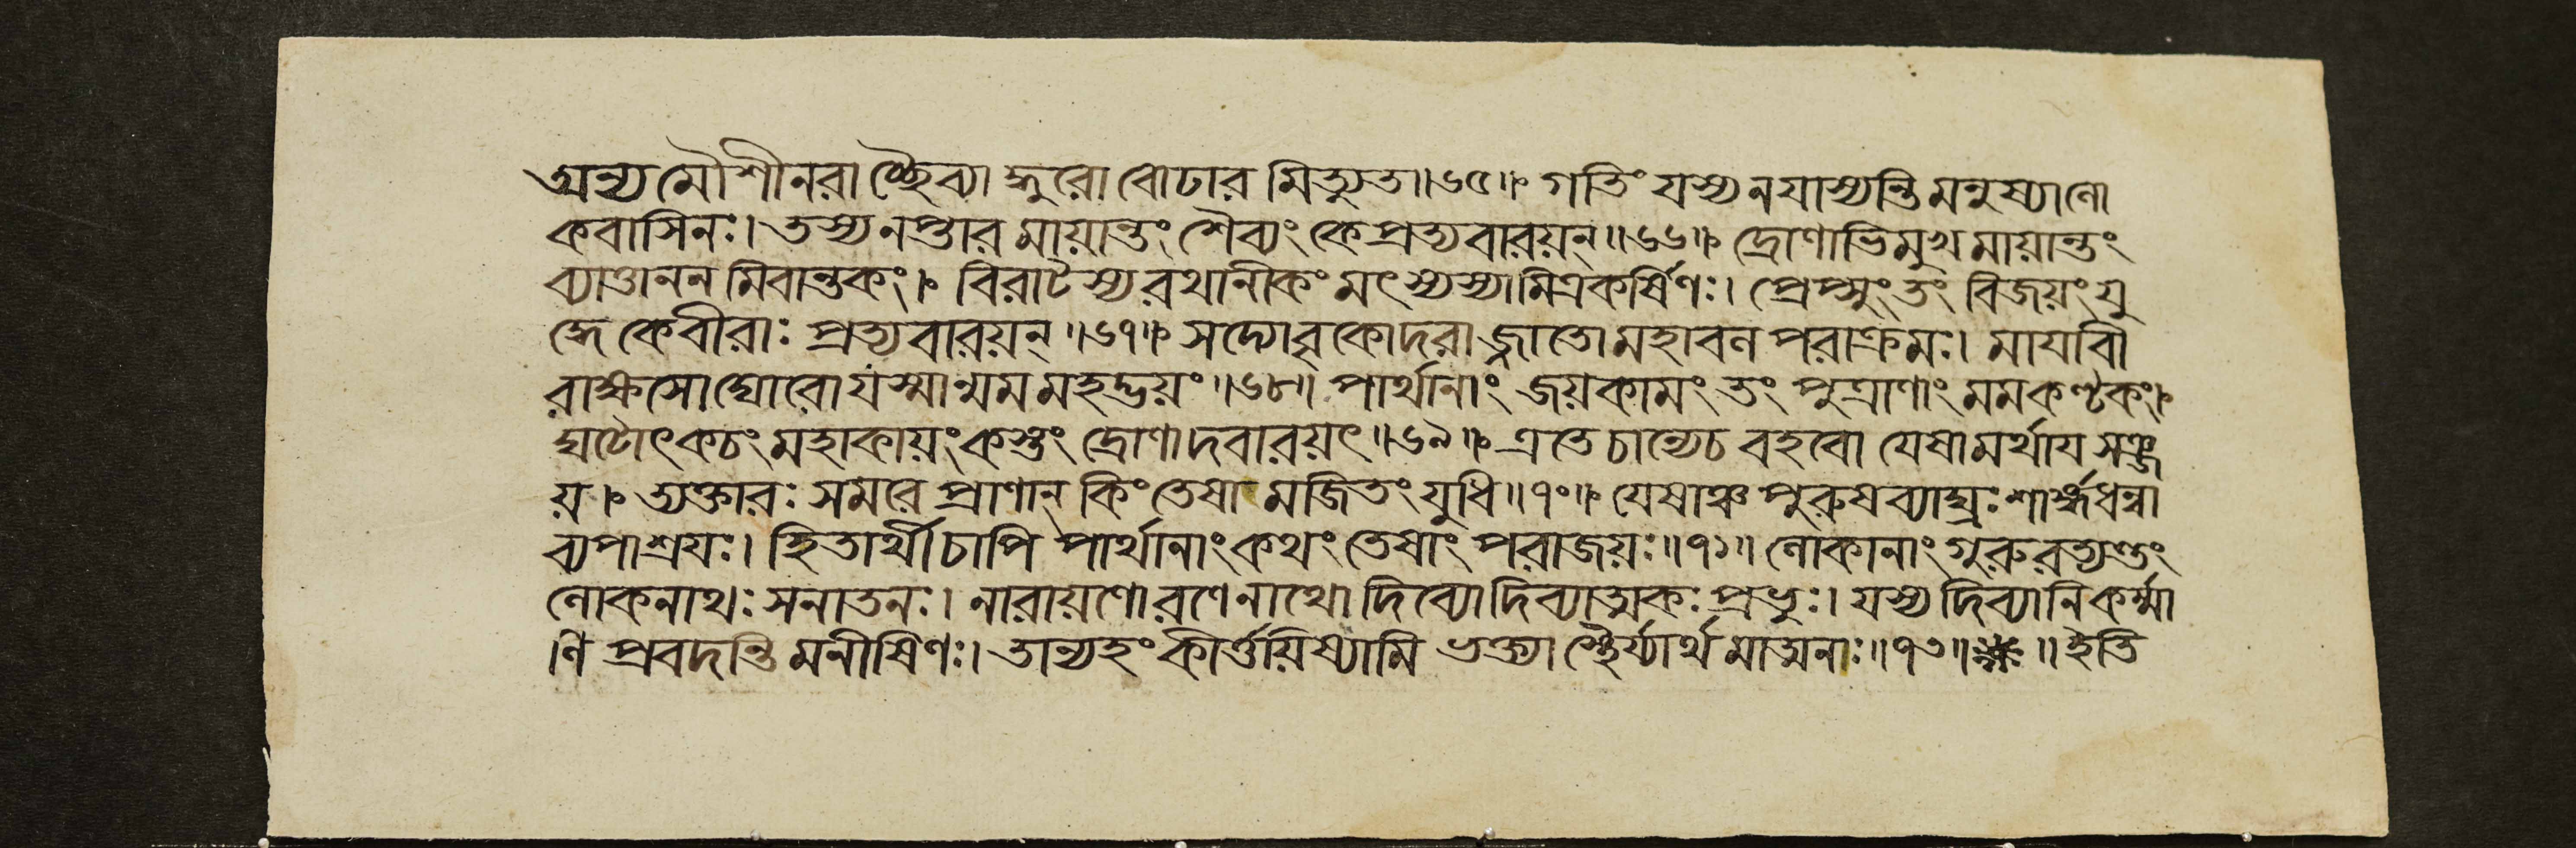 অন্য মৌশীনরাচ্ছৈব্যাদ্ধুরো বোঢার মিত্যুত॥৬৫॥ গতিং যস্য ন যাস্যন্তি মনুষ্যা লো
কবাসিনঃ। তস্য নপ্তার মায়ান্তং শৈব্যং কে প্রত্যবারয়ন্॥৬৬॥ দ্রোণাভিমুখ মায়ান্তং
ব্যাত্তানন মিবান্তকং। বিরাটস্য রথানীকং মৎস্যস্যামিত্রকর্ষিণঃ। প্রেপ্সুং তং বিজয়ং যু
দ্ধে কে বীরাঃ প্রত্যবারয়ন্॥৬৭॥ সদ্যোবৃকোদরাজ্জাতো মহাবল পরাক্রমঃ। মাযাবী
রাক্ষসো ঘোরো যস্মান্মম মহদ্ভয়ং॥৬৮॥ পার্থানাং জয়কামং তং পুত্রাণাং মম কণ্টকং।
ঘটোৎকচং মহাকায়ং কস্তং দ্রোণাদবারয়ৎ॥৬৯॥ এতে চান্যেচ বহবো যেষামর্থায সঞ্জ
য়। ত্যক্তারঃ সমরে প্রাণান্ কিং তেষা মজিতং যুধি॥৭০॥ যেষাঞ্চ পুরুষব্যাঘ্রঃ শার্ঙ্গধন্বা
ব্যপাশ্রযঃ। হিতার্থী চাপি পার্থানাং কথং তেষাং পরাজয়ঃ॥৭১॥ লোকানাং গুরুরত্যন্তং
লোকনাথঃ সনাতনঃ। নারায়ণো রণে নাথো দিব্যো দিব্যাত্মকঃ প্রভুঃ। যস্য দিব্যানি কর্ম্মা
ণি প্রবদন্তি মনীষিণঃ। তান্যহং কীর্ত্তয়িষ্যামি ভক্ত্যা স্থৈর্য্যার্থ মাত্মনঃ॥৭৩॥ ॥ ইতি